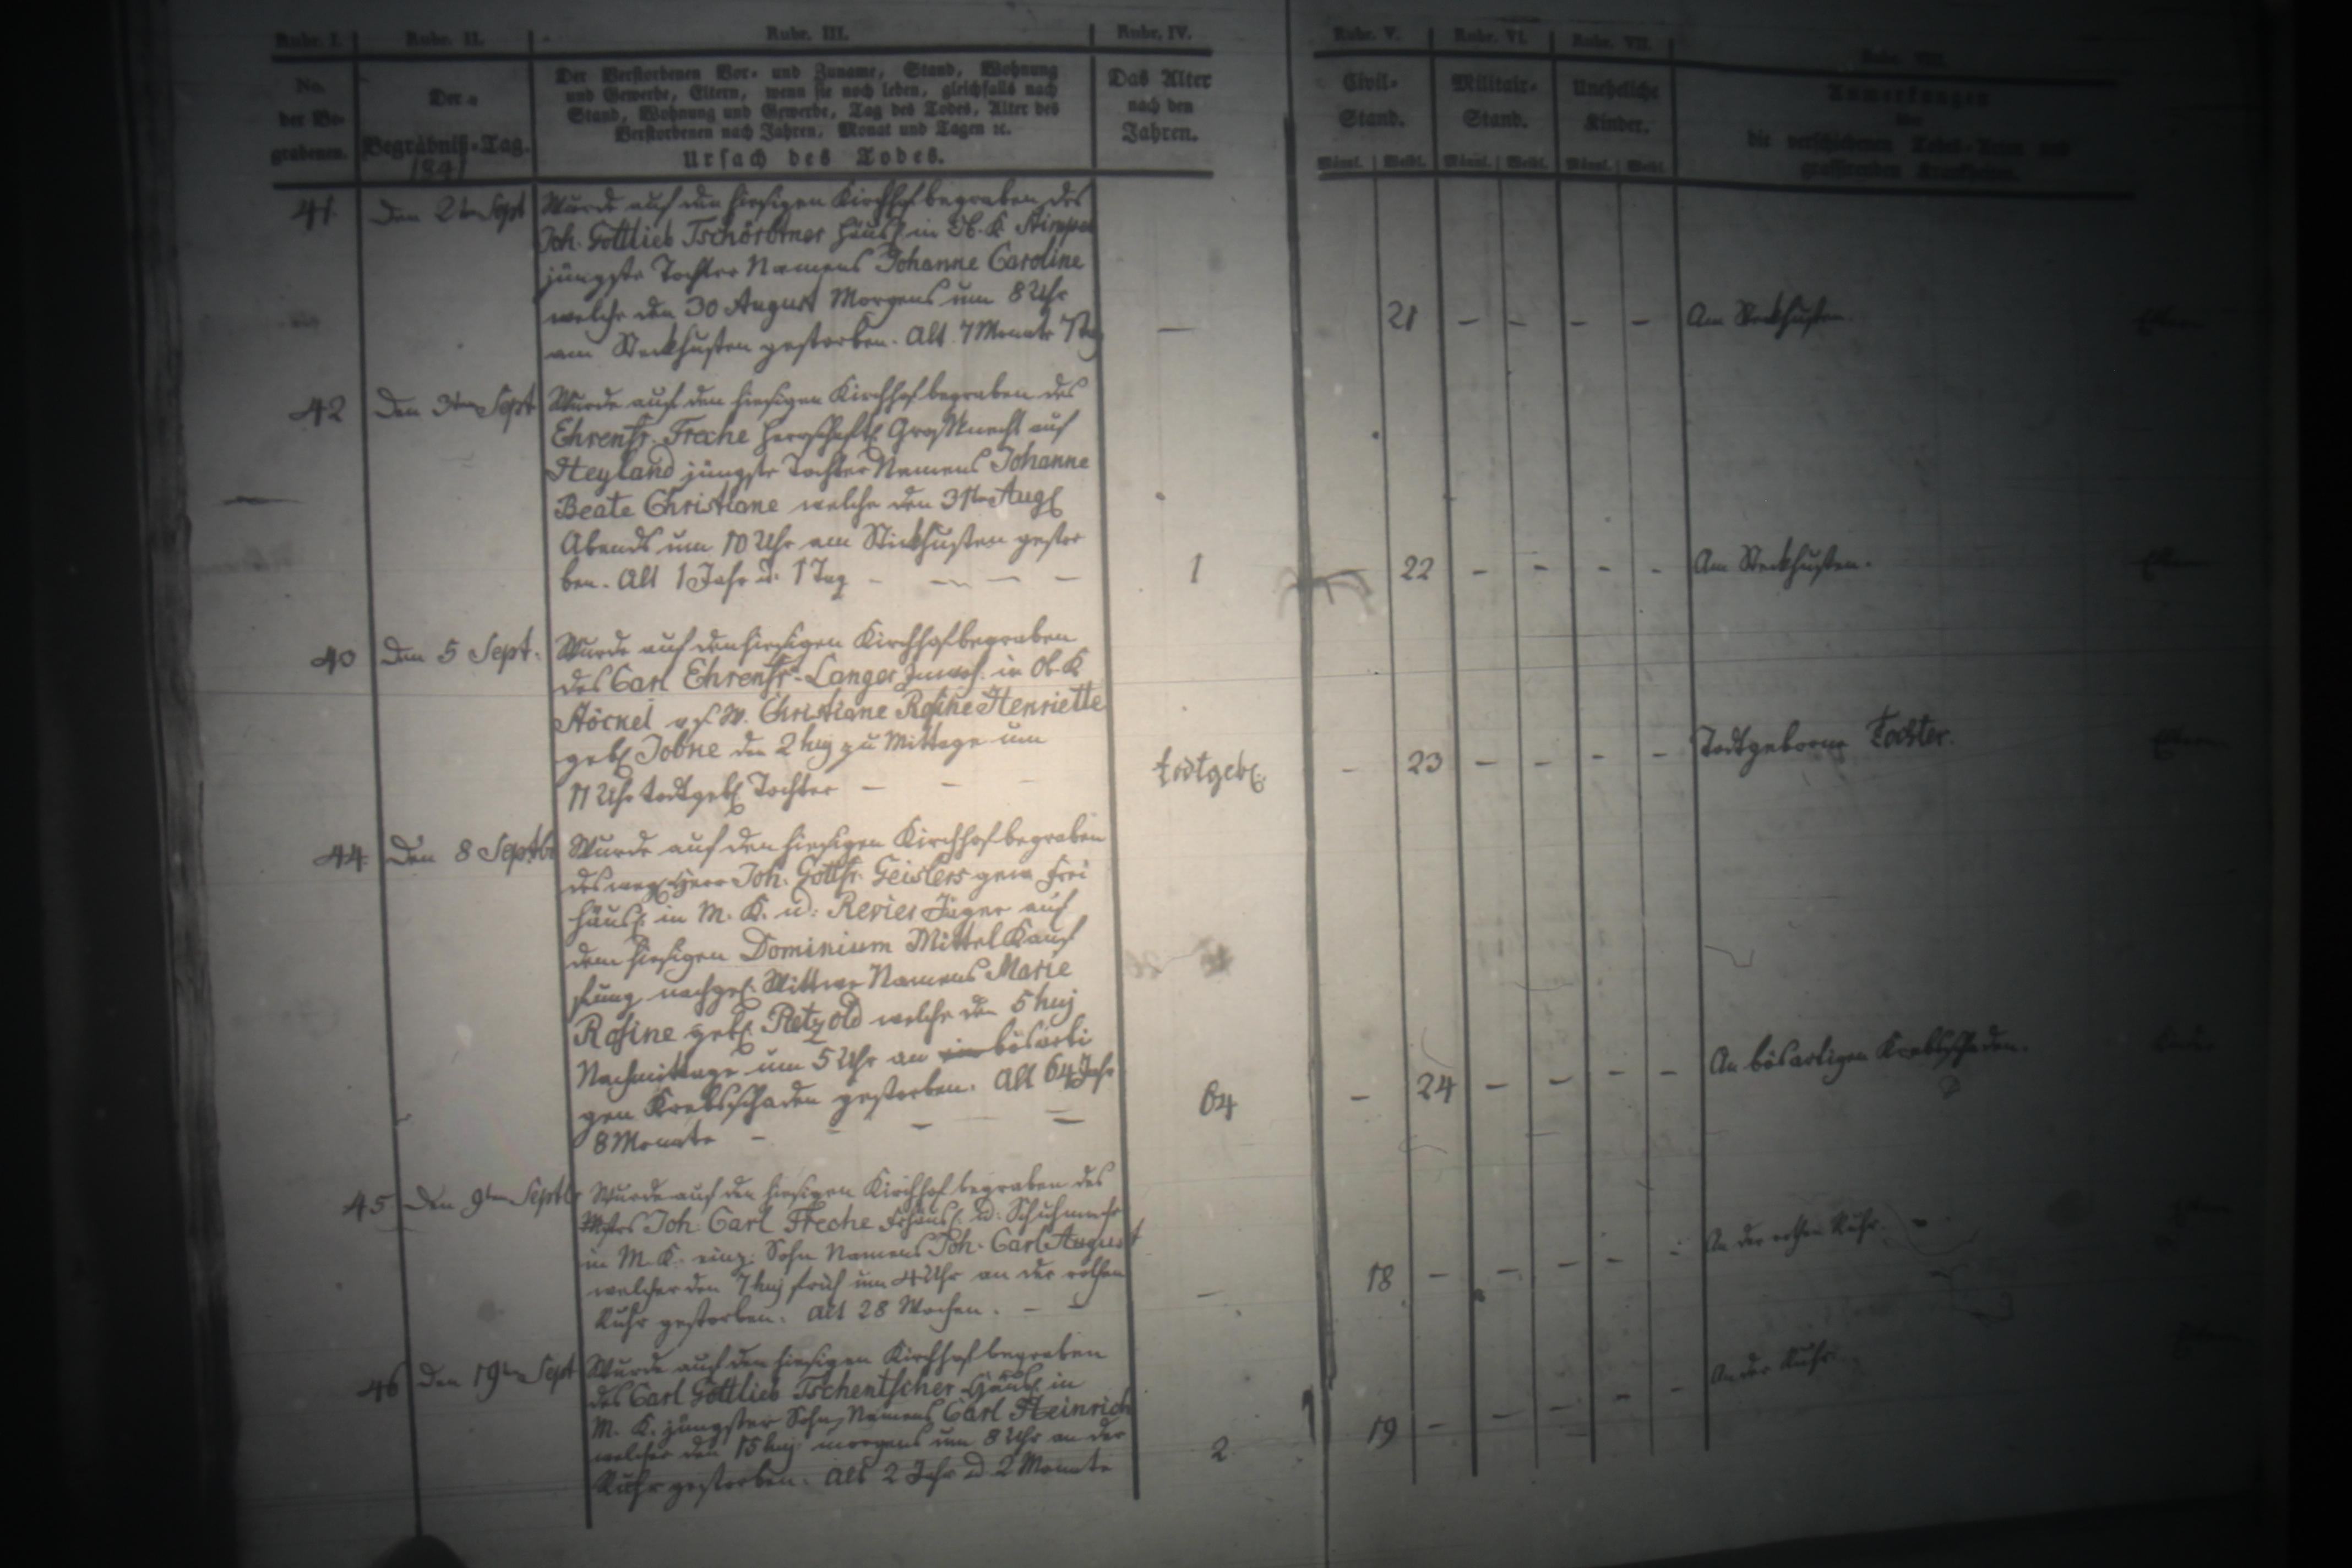 Rubr. I. Rubr. II. Rubr. III. Rubr. IV. Rubr. V. Rubr. VI. Rubr. VII. Rubr. VIII.
No. der Be- grabenen.
Der Begräbniß-Tag.
1841
Der Verstorbenen Vor- und Zuname, Stand, Wohnung
und Gewerbe, Eltern, wenn sie noch leben, gleichfalls nach
Stand, Wohnung und Gewerbe, Tag des Todes, Alter des
Verstorbenen nach Jahren, Monat und Tagen ꝛc.
Ursach des Todes.
Das Alter
nach den
Jahren.
Civil-
Stand.
Militair-
Stand.
Uneheliche
Kinder.
Anmerkungen
über
die verschiedenen Todes-Arten und
grassirenden Krankheiten.
Männl. Weibl. Männl. Weibl. Männl. Weibl.
41. Den 2ten Sept Wurde auf den hiesigen Kirchhof begraben des
Joh. Gottlieb Tschörtner Häusl. in Ob. K.
jüngste Tochter Namens Johanne Caroline
welche den 30 August Morgens um 8 Uhr
am Steckhusten gestorben. Alt 7 Monate 7 Tag
— 21 – – – – Am Steckhusten.
42 Den 3ten Sept Wurde auf den hiesigen Kirchhof begraben des
Ehrenfr. Freche herrschaftl. Großknecht auf
Heyland jüngste Tochter Namens Johanne
Beate Christiane welche den 31ten Aug.
Abends um 10 Uhr am Stickhusten gestor
ben. Alt 1 Jahr u. 1 Tag – – – –
1 22 – – – – Am Steckhusten.
40 Den 5 Sept. Wurde auf den hiesigen Kirchhof begraben
des Carl Ehrenfr. Langer Inwoh. in Ob. K
Stöckel Christiane Rosine Henriette
geb. Tobne den 2 huj zu Mittage um
11 Uhr todtgeb. Tochter – –
todtgeb. – 23 – – – – Todtgeborne Tochter.
44. Den 8 Septbr Wurde auf den hiesigen Kirchhof begraben
des Herr Joh. Gottfr. Geislers gew. Frei
häusl. in M. K. u. Revier Jäger auf
dem hiesigen Dominium Mittel Kauf
fung nachgel. Wittwe Namens Marie
Rosine geb. Petzold welche den 5 huj
Nachmittage um 5 Uhr an bösarti
gen Krebsschaden gestorben. Alt 64 Jahr
8 Monate – – – –
64 – 24 – – – – An bösartigen Krebsschaden.
45. Den 9ten Septbr Wurde auf den hiesigen Kirchhof begraben des
Mstrs Joh. Carl Freche Frhäusl. u. Schuhmachr
in M. K. einz. Sohn Namens Joh. Carl August
welcher den 7 huj früh um 4 Uhr an der rothen
Ruhr gestorben. Alt 28 Wochen. – –
– 18 – – – – – An der rothen Ruhr. –
46 Den 19ten Sept Wurde auf den hiesigen Kirchhof begraben
des Carl Gottlieb Tschentscher Häusl. in
M. K. jüngster Sohn, Namens Carl Heinrich
welcher den 15 huj morgens um 8 Uhr an der
Ruhr gestorben. Alt 2 Jahr u 2 Monate
2. 19 – – – – – An der Ruhr.